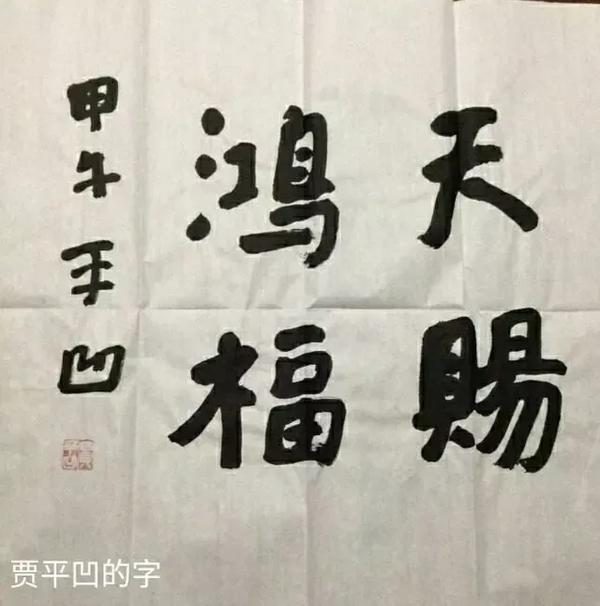 天赐
鸿福
甲午 平凹
贾平凹的字